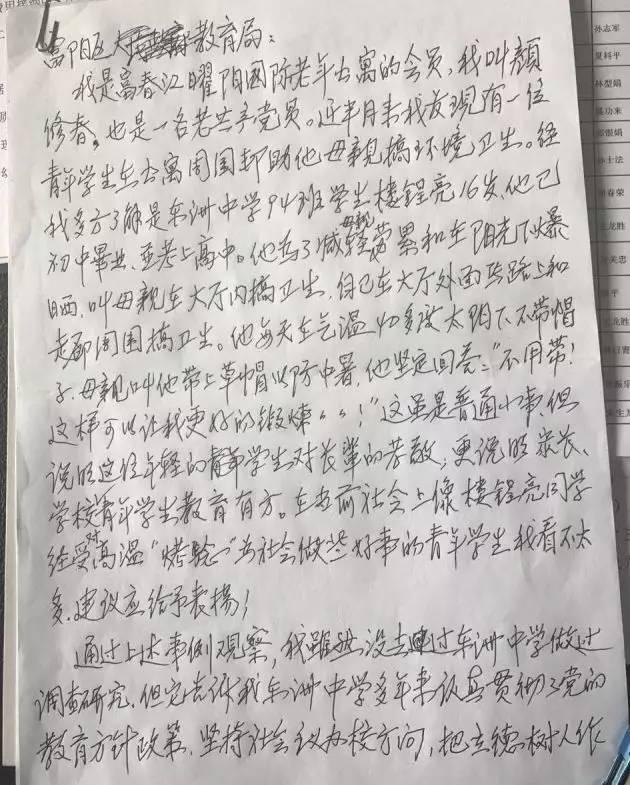 富阳区教育局：
我是富春江曜阳国际老年公寓的会员，我叫颜
修春，也是一名老共产党员。近半月来我发现有一位
青年学生在公寓周围帮助他母亲搞环境卫生。经
我多方了解是东洲中学94班学生楼锃亮16岁，他已
初中毕业，并考上高中。他为了减轻母親劳累和在阳光下爆
晒，叫母親在大厅内搞卫生，自己在大厅外面马路上和
走廊周围搞卫生。他每天在气温40多度太阳下，不带帽
子，母親叫他带上草帽以防中暑，他坚定回答："不用带！
这样可以让我更好的锻煉……！"这虽是普通小事，但
说明这位年轻的青年学生对长輩的孝敬，更说明家长、
学校对青年学生教育有方。在当前社会上像楼锃亮同学
经受高温"烤验"为社会做些好事的青年学生我看不太
多，建议应给予表揚！
通过上述事例观察，我雖然没去过东洲中学做过
调查研究，但它告诉我东洲中学多年来认真贯彻了党的
教育方针政策，坚持社会主义办校方向，把立德树人作
孙志军
夏科平
林型娟